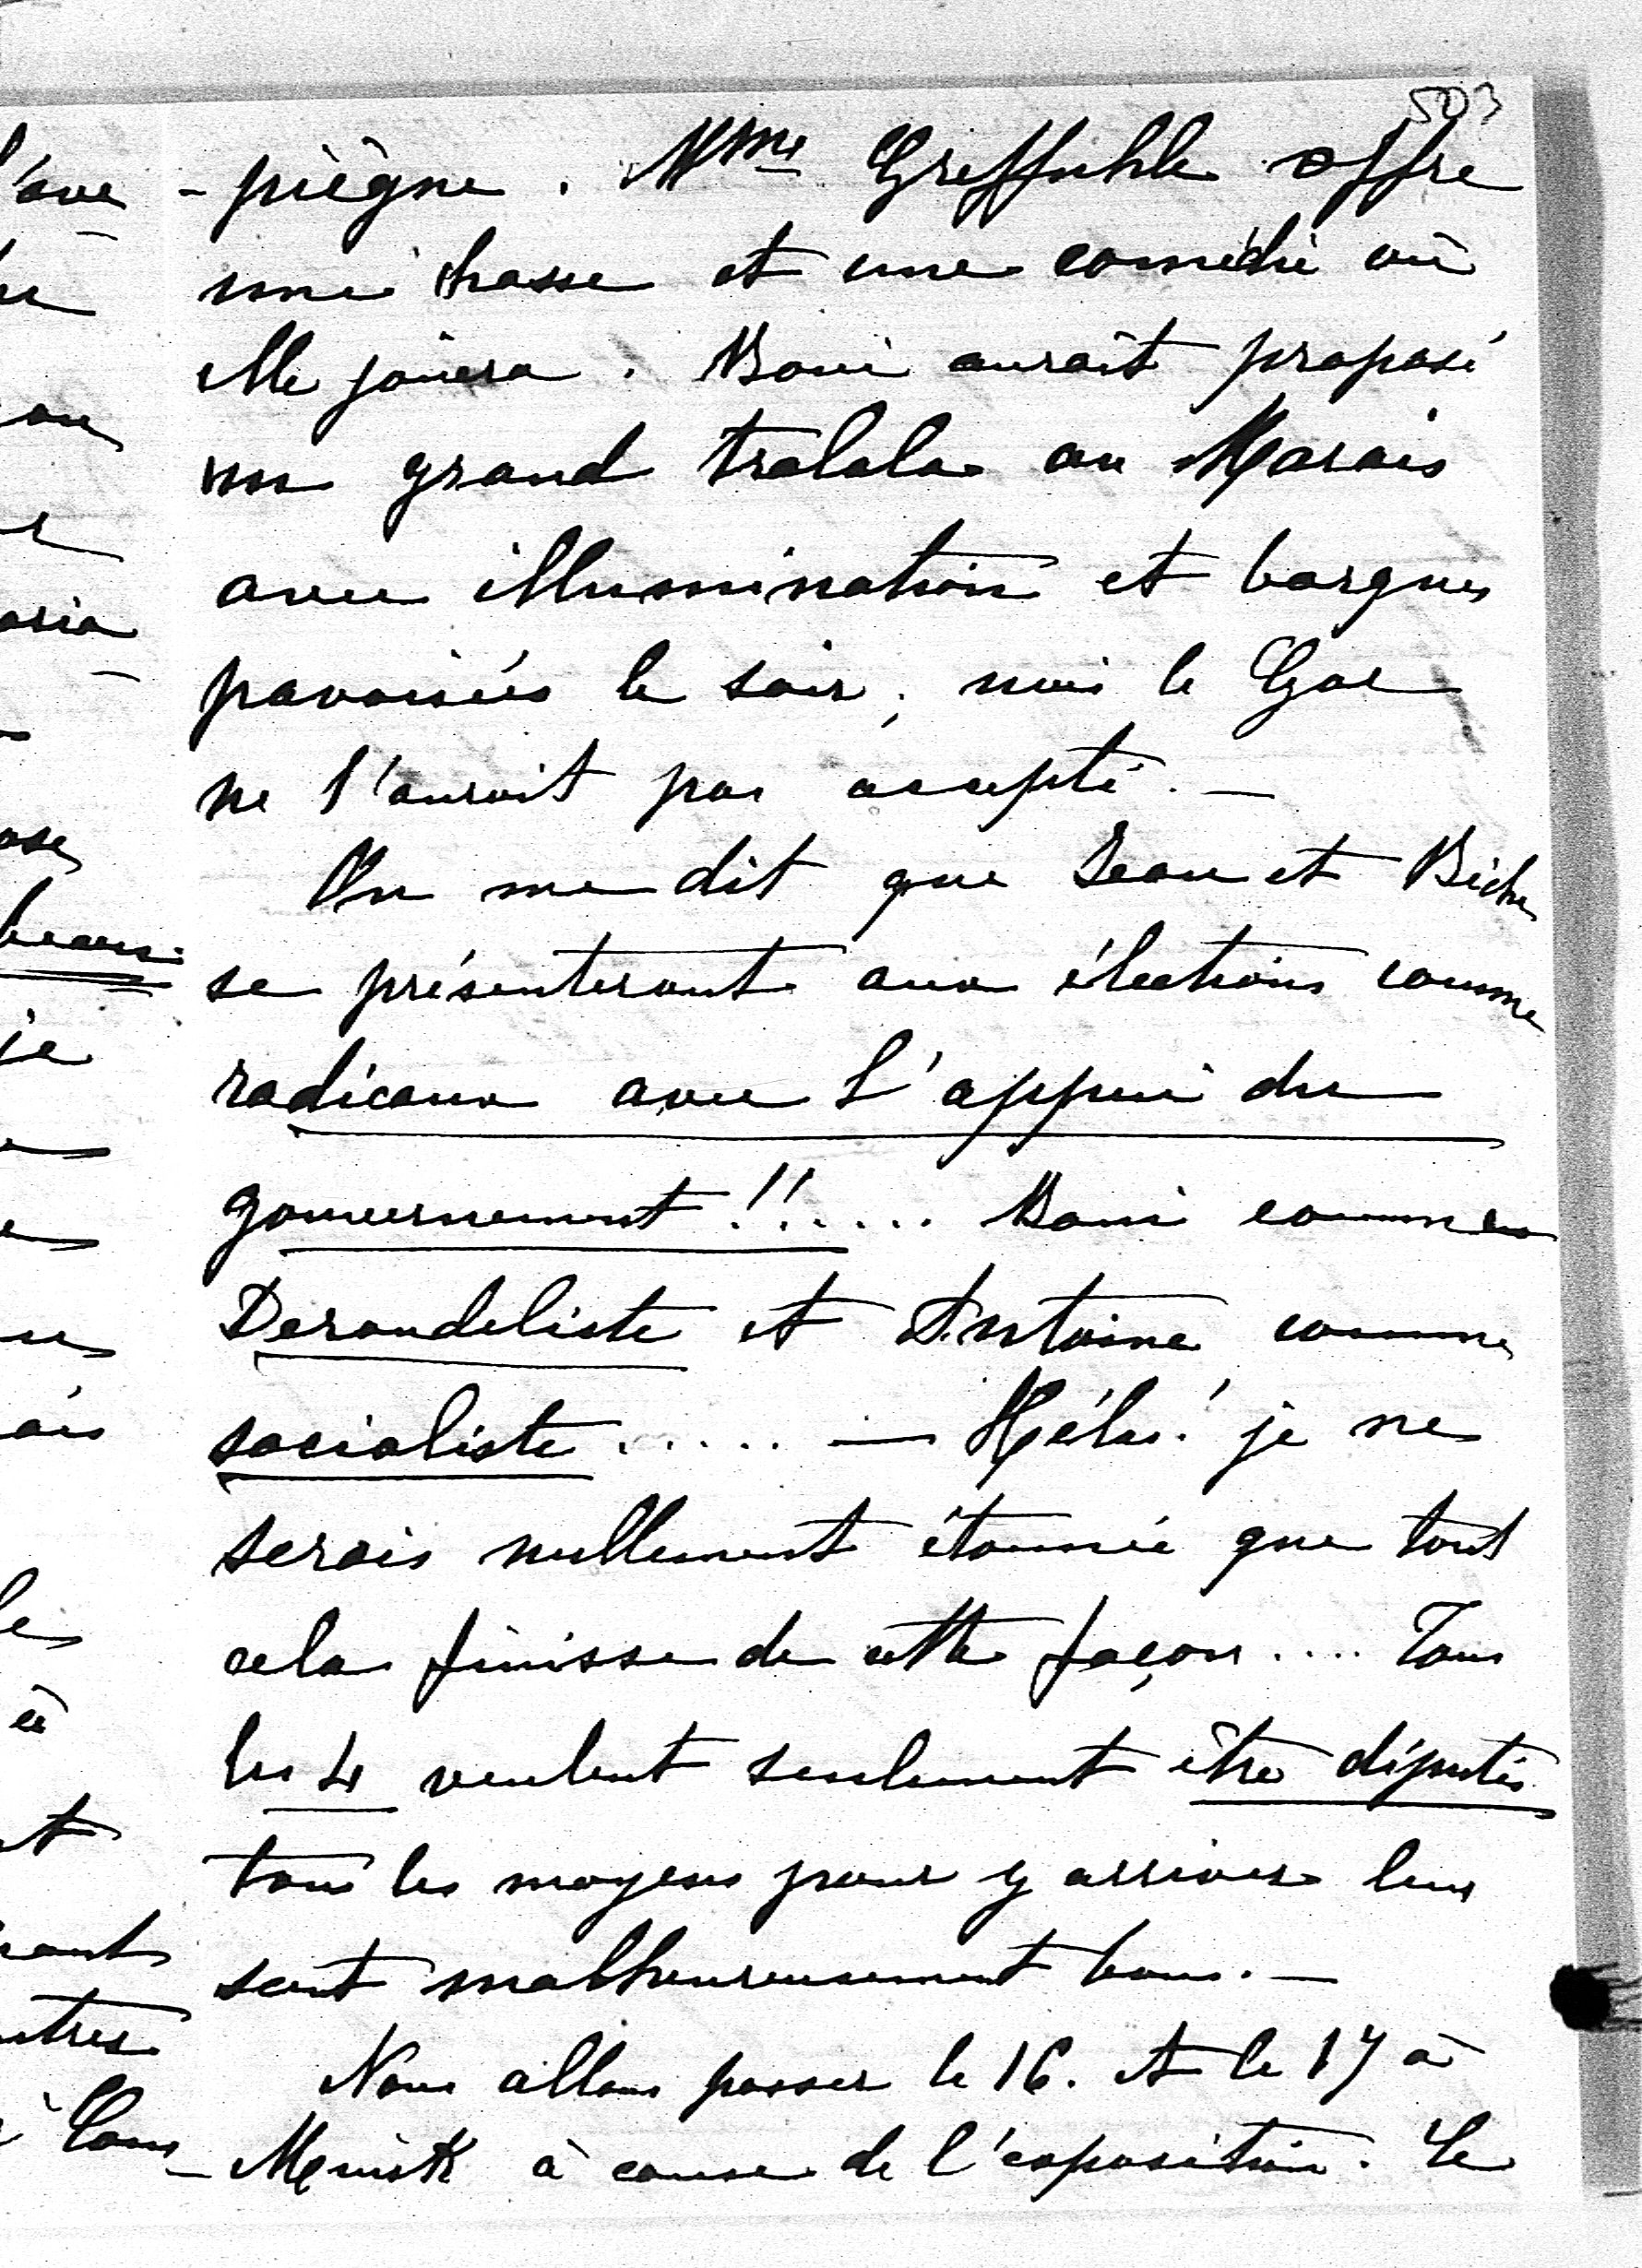 503
-piègne. Mme Greffuhle offre
une chasse et une comédie où
elle jouera. Boni aurait proposé
un grand tralala au Marais
avec illumination et barques
pavoisées le soir; mais le Gal
ne l'aurait pas accepté. —
On me dit que Jean et Biche
se présenteront aux élections comme
radicaux avec l'appui du
gouvernement !!..... Boni comme
Deroulediste et Antoine comme
socialiste ..... — Hélas! je ne
serais nullement étonnée que tout
cela finisse de cette façon .... Tous
les 4 veulent seulement être députés
tous les moyens pour y arriver leur
sont malheureusement bons. —
Nous allons passer le 16. et le 17 à
à cause de l'exposition. Le